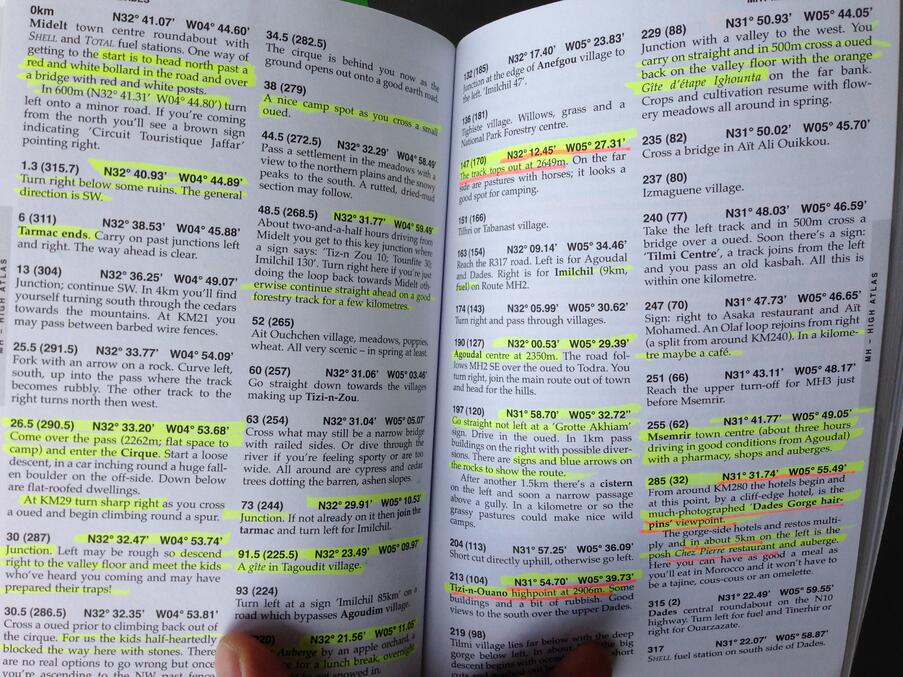 0km N32° 41.07' W04° 44.60'
Midelt town centre roundabout with
SHELL and TOTAL fuel stations. One way of
getting to the start is to head north past a
red and white bollard in the road and over
a bridge with red and white posts.
In 600m (N32° 41.31' W04° 44.80') turn
left onto a minor road. If you're coming
from the north you'll see a brown sign
indicating 'Circuit Touristique Jaffar'
pointing right.
1.3 (315.7) N32° 40.93' W04° 44.89'
Turn right below some ruins. The general
direction is SW.
6 (311) N32° 38.53' W04° 45.88'
Tarmac ends. Carry on past junctions left
and right. The way ahead is clear.
13 (304) N32° 36.25' W04° 49.07'
Junction; continue SW. In 4km you'll find
yourself turning south through the cedars
towards the mountains. At KM21 you
may pass between barbed wire fences.
25.5 (291.5) N32° 33.77' W04° 54.09'
Fork with an arrow on a rock. Curve left,
south, up into the pass where the track
becomes rubbly. The other track to the
right turns north then west.
26.5 (290.5) N32° 33.20' W04° 53.68'
Come over the pass (2262m; flat space to
camp) and enter the Cirque. Start a loose
descent, in a car inching round a huge fall-
en boulder on the off-side. Down below
are flat-roofed dwellings.
At KM29 turn sharp right as you cross
a oued and begin climbing round a spur.
30 (287) N32° 32.47' W04° 53.74'
Junction. Left may be rough so descend
right to the valley floor and meet the kids
who've heard you coming and may have
prepared their traps!
30.5 (286.5) N32° 32.35' W04° 53.81'
Cross a oued prior to climbing back out of
the cirque. For us the kids half-heartedly
blocked the way here with stones. There
are no real options to go wrong but once
you're ascending to the NW past
34.5 (282.5)
The cirque is behind you now as the
ground opens out onto a good earth road.
38 (279)
A nice camp spot as you cross a small
oued.
44.5 (272.5) N32° 32.29' W04° 58.49'
Pass a settlement in the meadows with a
view to the northern plains and the snowy
peaks to the south. A rutted, dried-mud
section may follow.
48.5 (268.5) N32° 31.77' W04° 59.49'
About two-and-a-half hours driving from
Midelt you get to this key junction where
a sign says: 'Tiz-n Zou 10; Tounfite 30;
Imilchil 130'. Turn right here if you're just
doing the loop back towards Midelt oth-
erwise continue straight ahead on a good
forestry track for a few kilometres.
52 (265)
Ait Ouchchen village, meadows, poppies,
wheat. All very scenic – in spring at least.
60 (257) N32° 31.06' W05° 03.46'
Go straight down towards the villages
making up Tizi-n-Zou.
63 (254) N32° 31.04' W05° 05.07'
Cross what may still be a narrow bridge
with railed sides. Or dive through the
river if you're feeling sporty or are too
wide. All around are cypress and cedar
trees dotting the barren, ashen slopes
73 (244) N32° 29.91' W05° 10.53'
Junction. If not already on it then join the
tarmac and turn left for Imilchil.
91.5 (225.5) N32° 23.49' W05° 09.97'
A gîte in Tagoudit village.
93 (224)
Turn left at a sign 'Imilchil 85km' on a
road which bypasses Agoudim village.
N32° 21.56' W05° 11.05'
Auberge by an apple orchard, a
for a lunch break, overnight
132 (185) N32° 17.40' W05° 23.83'
Junction at the edge of Anefgou village to
the left. 'Imilchil 47'.
136 (181)
Tighiste village. Willows, grass and a
National Park Forestry centre.
147 (170) N32° 12.45' W05° 27.31'
The track tops out at 2649m. On the far
side are pastures with horses; it looks a
good spot for camping.
151 (166)
Tilhri or Tabanast village.
163 (154) N32° 09.14' W05° 34.46'
Reach the R317 road. Left is for Agoudal
and Dades. Right is for Imilchil (9km,
fuel) on Route MH2.
174 (143) N32° 05.99' W05° 30.62'
Turn right and pass through villages.
190 (127) N32° 00.53' W05° 29.39'
Agoudal centre at 2350m. The road fol-
lows MH2 SE over the oued to Todra. You
turn right, join the main route out of town
and head for the hills.
197 (120) N31° 58.70' W05° 32.72''
Go straight not left at a 'Grotte Akhiam'
sign. Drive in the oued. In 1km pass
buildings on the right with possible diver-
sions. There are signs and blue arrows on
the rocks to show the route.
After another 1.5km there's a cistern
on the left and soon a narrow passage
above a gully. In a kilometre or so the
grassy pastures could make nice wild
camps.
204 (113) N31° 57.25' W05° 36.09'
Short cut directly uphill, otherwise go left.
213 (104) N31° 54.70' W05° 39.73'
Tizi-n-Ouano highpoint at 2906m. Some
buildings and a bit of rubbish. Good
views to the south over the upper Dades.
219 (98)
Tilmi village lies far below with the deep
gorge below left. In about
descent begins with
229 (88) N31° 50.93' W05° 44.05'
Junction with a valley to the west. You
carry on straight and in 500m cross a oued
back on the valley floor with the orange
Gîte d'étape Ighounta on the far bank.
Crops and cultivation resume with flow-
ery meadows all around in spring.
235 (82) N31° 50.02' W05° 45.70'
Cross a bridge in Aït Ali Ouikkou.
237 (80)
Izmaguene village.
240 (77) N31° 48.03' W05° 46.59'
Take the left and in 500m cross a
bridge over a oued. Soon there's a sign:
'Tilmi Centre', a track joins from the left
and you pass an old kasbah. All this is
within one kilometre.
247 (70) N31° 47.73' W05° 46.65'
Sign: right to Asaka restaurant and Aït
Mohamed. An Olaf loop rejoins from right
(a split from around KM240). In a kilome-
tre maybe a café.
251 (66) N31° 43.11' W05° 48.17'
Reach the upper turn-off for MH3 just
before Msemrir.
255 (62) N31° 41.77' W05° 49.05'
Msemrir town centre (about three hours
driving in good conditions from Agoudal)
with a pharmacy, shops and auberges.
285 (32) N31° 31.74' W05° 55.49'
From around KM280 the hotels begin and
at this point, by a cliff-edge hotel, is the
much-photographed 'Dades Gorge hair-
pins' viewpoint.
The gorge-side hotels and restos multi-
ply and in about 5km on the left is the
posh Chez Pierre restaurant and auberge.
Here you can have as good a meal as
you'll eat in Morocco and it won't have to
be a tajine, cous-cous or an omelette.
315 (2) N31° 22.49' W05° 59.55'
Dades central roundabout on the N10
highway. Turn left for fuel and Tinerhir or
right for Ouarzazate.
317 N31° 22.07' W05° 58.87'
SHELL fuel station on south side of Dades.
MH – HIGH ATLAS